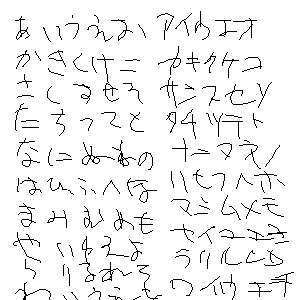 あいうえお アイウエオ
かきくけこ カキクケコ
さしすせそ サシスセソ
たちつてと タチツテト
なにぬねの ナニヌネノ
はひふへほ ハヒフヘホ
まみむめも マミムメモ
やいゆえよ ヤイユエヨ
らりるれろ ラリルレロ
わいうえを ワイウエヲ